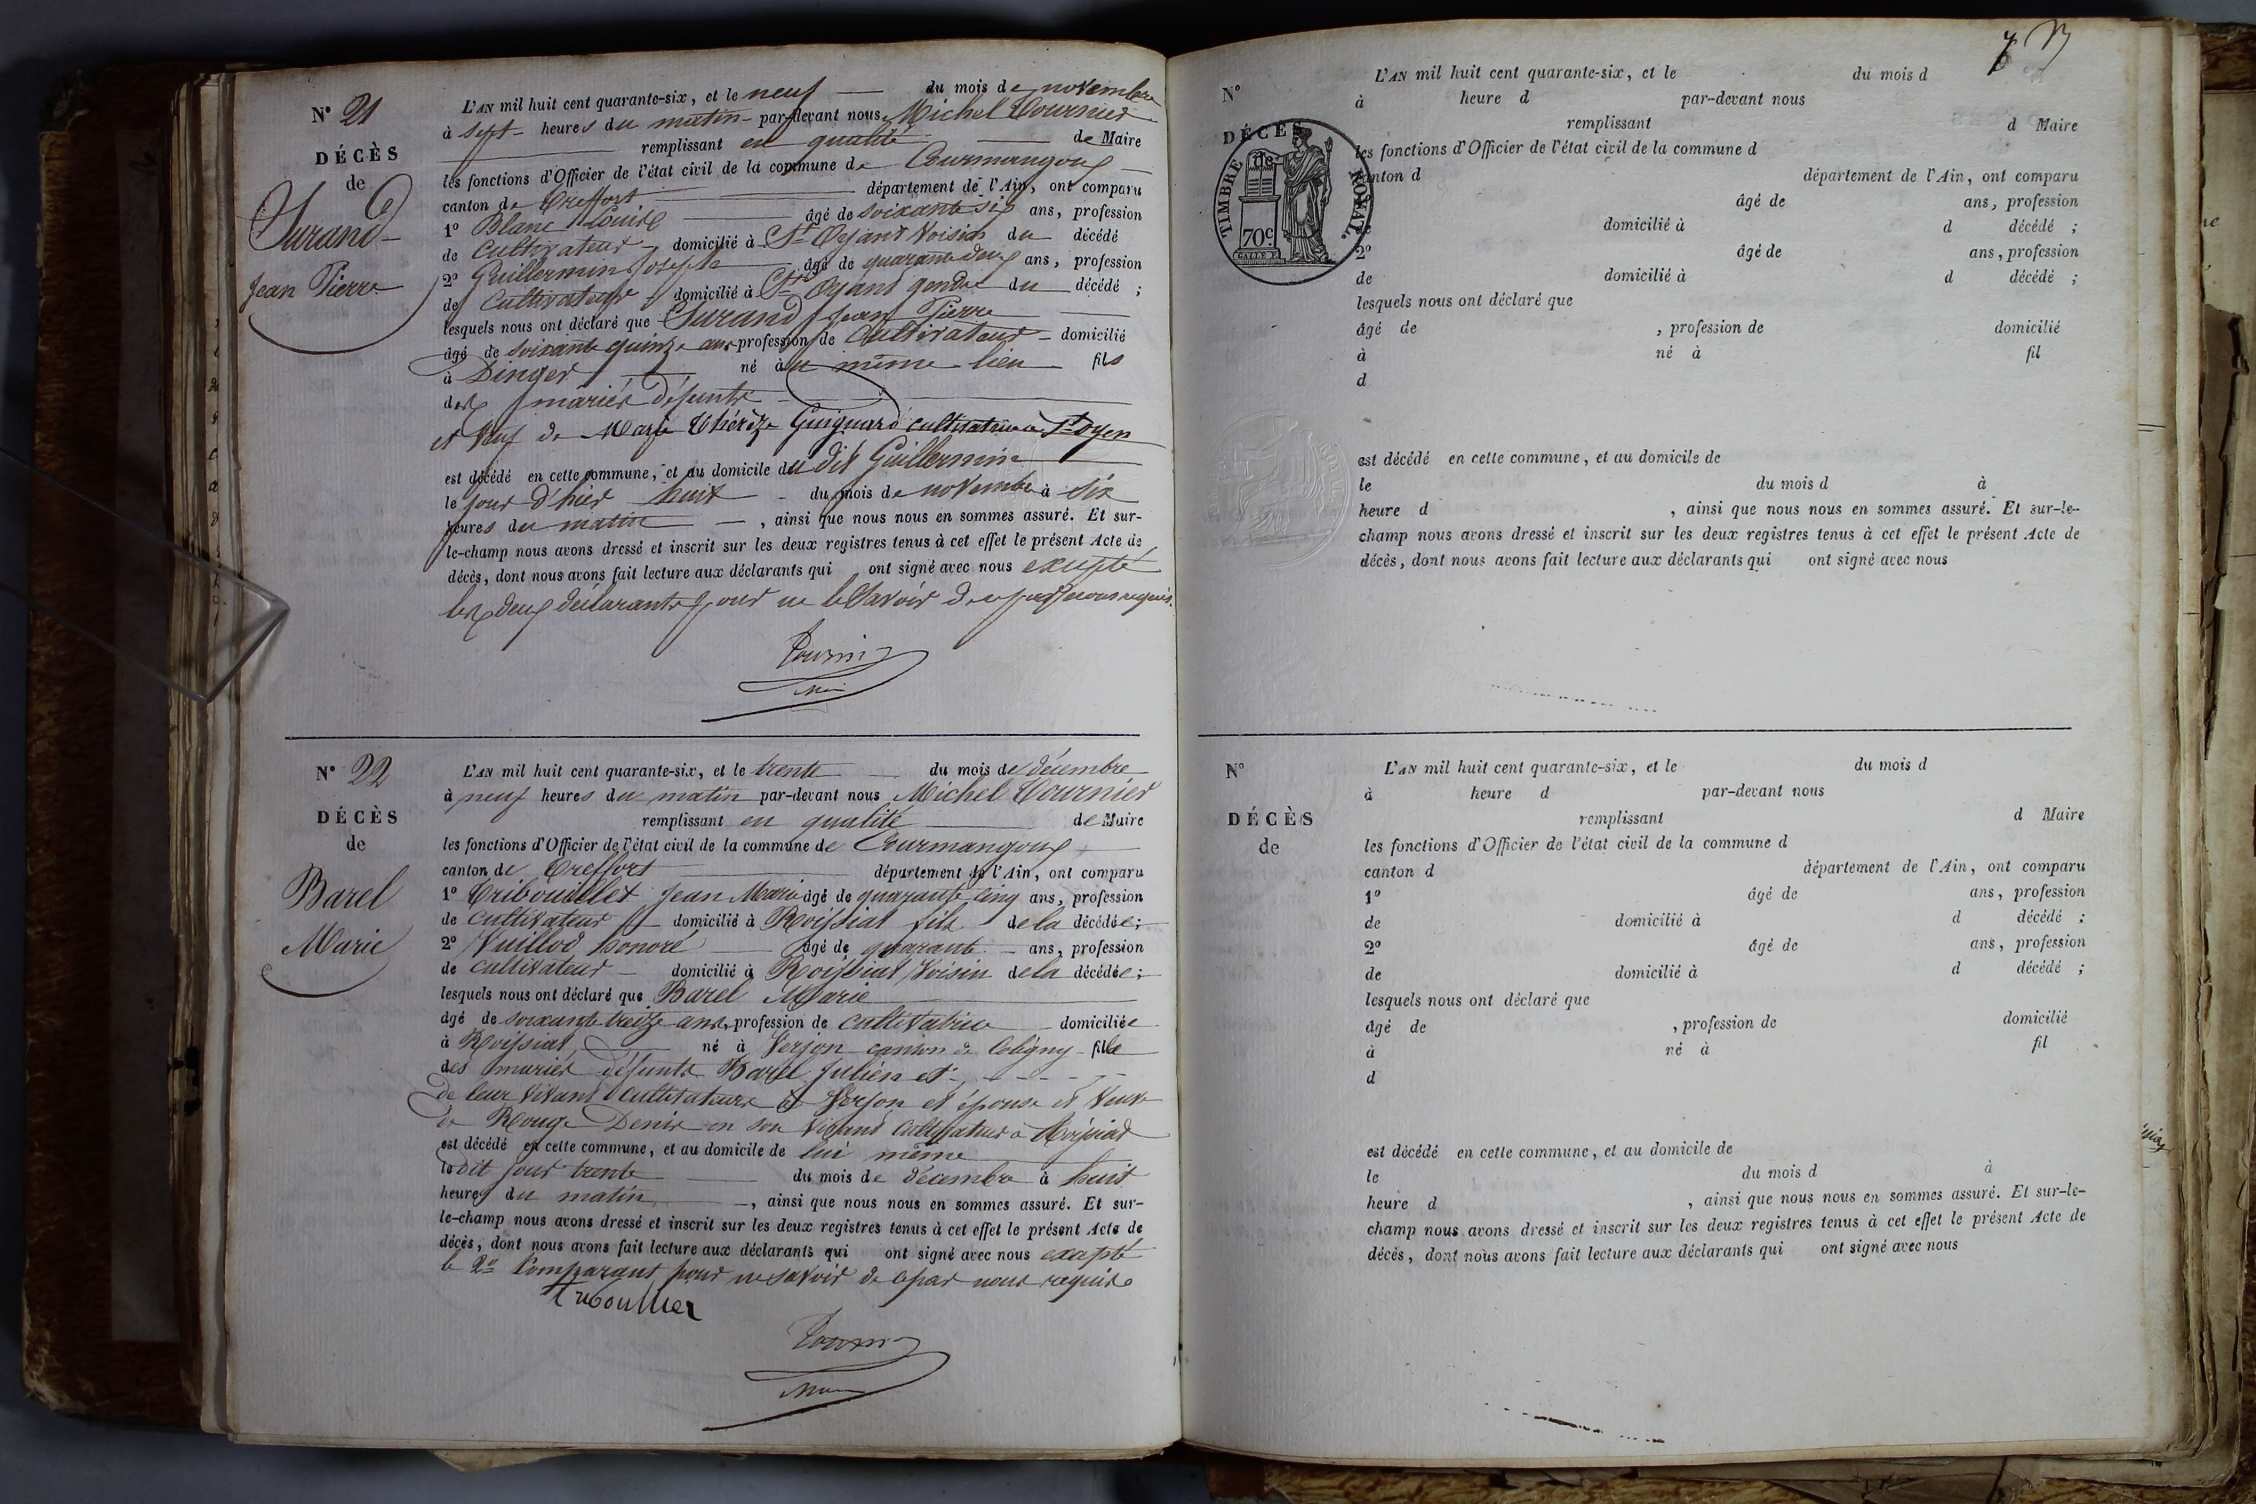 N° 21
DÉCÈS
de
Surand
Jean Pierre
L'AN mil huit cent quarante-six, et le neuf du mois de novembre
à sept heures du matin par-devant nous Michel Tournier
remplissant en qualité de Maire
les fonctions d'Officier de l'état civil de la commune de Courmangoux
canton de Treffort département de l'Ain, ont comparu
1° Blanc Louis âgé de soixante six ans, profession
de cultivateur domicilié à St Oyand Voisin du décédé
2° Guillermin Joseph âgé de quarante deux ans, profession
de cultivateur domicilié à St Oyand gendre du décédé ;
lesquels nous ont déclaré que Surand Jean Pierre
âgé de soixante quinze ans profession de Cultivateur domicilié
à Dinger né au même lieu fils
des mariés défunts
et veuf de Marie Thérèze Guignard cultivatrice à St Oyen
est décédé en cette commune, et au domicile du dit Guillermin
le jour d'hier huit du mois de novembre à six
heures du matin , ainsi que nous nous en sommes assuré. Et sur-
le-champ nous avons dressé et inscrit sur les deux registres tenus à cet effet le présent Acte de
décès, dont nous avons fait lecture aux déclarants qui ont signé avec nous excepté
les deux déclarants pour ne le savoir de ce par nous requis.
Tournier
N° 22
DÉCÈS
de
Barel
Marie
L'AN mil huit cent quarante-six, et le trente du mois de décembre
à neuf heures du matin par-devant nous Michel Tournier
remplissant en qualité de Maire
les fonctions d'Officier de l'état civil de la commune de Courmangoux
canton de Treffort département de l'Ain, ont comparu
1° Tribouillet Jean Marie âgé de quarante cinq ans, profession
de cultivateur domicilié à Roissiat fils de la décédée ;
2° Vuillod honoré âgé de quarante ans, profession
de cultivateur domicilié à Roissiat Voisin de la décédée ;
lesquels nous ont déclaré que Barel Marie
âgé de soixante treize ans, profession de cultivatrice domiciliée
à Roissiat, né à Verjon canton de Coligny fille
des mariés défunts Barel Julien et
de leur vivant Cultivateurs à Verjon et épouse et veuve
de Rouge Denis en son vivant Cultivateur à Roissiat
est décédé en cette commune, et au domicile de lui même
le dit jour trente du mois de décembre à huit
heures du matin , ainsi que nous nous en sommes assuré. Et sur-
le-champ nous avons dressé et inscrit sur les deux registres tenus à cet effet le présent Acte de
décès, dont nous avons fait lecture aux déclarants qui ont signé avec nous excepté
le 2e Comparant pour ne savoir de ce par nous requis
Tournier
N°
DÉCÈS
TIMBRE ROYAL.
de
70c.
L'AN mil huit cent quarante-six, et le du mois d
à heure d par-devant nous
remplissant d Maire
les fonctions d'Officier de l'état civil de la commune d
canton d département de l'Ain, ont comparu
âgé de ans, profession
domicilié à d décédé ;
2° âgé de ans, profession
de domicilié à d décédé ;
lesquels nous ont déclaré que
âgé de , profession de domicilié
à né à fil
d
est décédé en cette commune, et au domicile de
le du mois d à
heure d , ainsi que nous nous en sommes assuré. Et sur-le-
champ nous avons dressé et inscrit sur les deux registres tenus à cet effet le présent Acte de
décès, dont nous avons fait lecture aux déclarants qui ont signé avec nous
N°
DÉCÈS
de
L'AN mil huit cent quarante-six, et le du mois d
à heure d par-devant nous
remplissant d Maire
les fonctions d'Officier de l'état civil de la commune d
canton d département de l'Ain, ont comparu
1° âgé de ans, profession
de domicilié à d décédé ;
2° âgé de ans, profession
de domicilié à d décédé ;
lesquels nous ont déclaré que
âgé de , profession de domicilié
à né à fil
d
est décédé en cette commune, et au domicile de
le du mois d à
heure d , ainsi que nous nous en sommes assuré. Et sur-le-
champ nous avons dressé et inscrit sur les deux registres tenus à cet effet le présent Acte de
décès, dont nous avons fait lecture aux déclarants qui ont signé avec nous